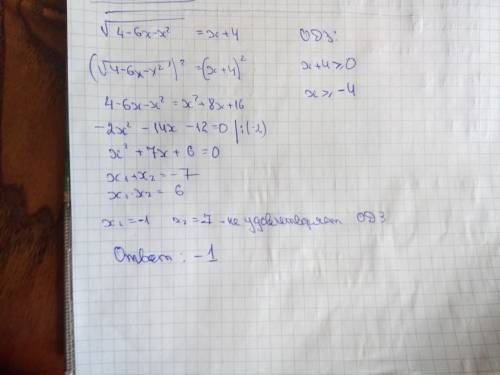 √(4-6x-x²) = x+4 ОДЗ:
(√(4-6x-x²))² = (x+4)² x+4≥0
4-6x-x² = x²+8x+16 x≥-4
-2x² -14x -12=0 |:(-2)
x² +7x+6=0
x₁+x₂=-7
x₁·x₂= 6
x₁=-1 x₂=-7 -не удовлетворяет ОДЗ
Ответ: -1